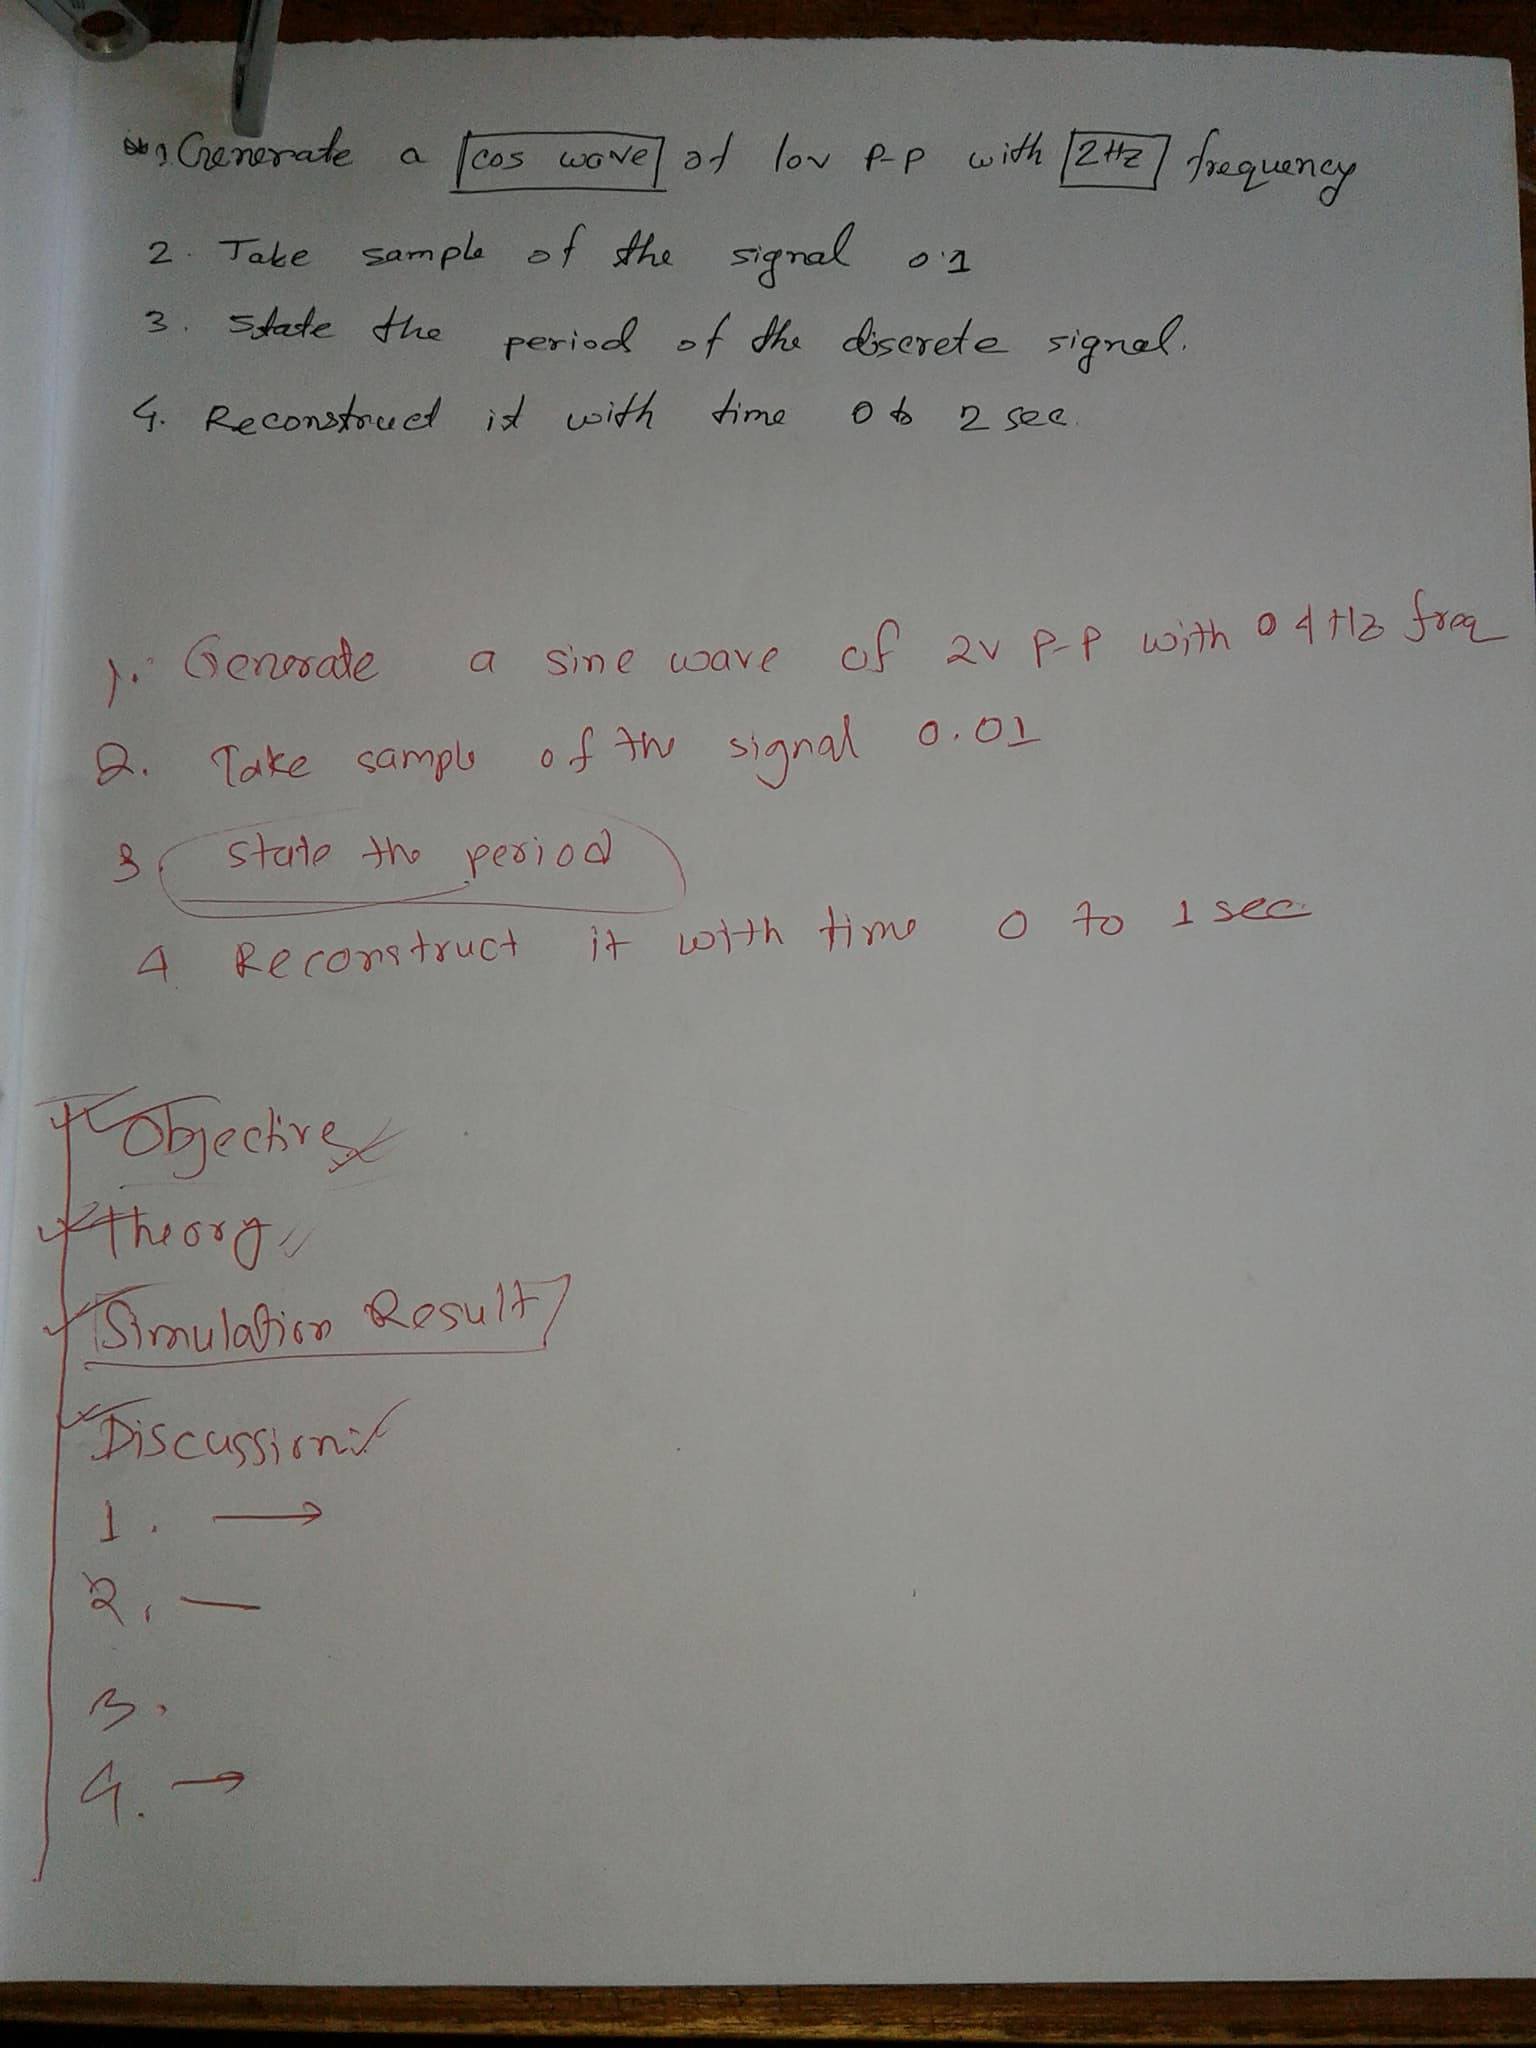 1. Generate a cos wave of 10v P-P with 2Hz frequency
2. Take sample of the signal 0.1
3. State the period of the discrete signal.
4. Reconstruct it with time 0 to 2 sec.
1. Generate a sine wave of 2v P-P with 04Hz freq
2. Take sample of the signal 0.01
3. State the period
4 Reconstruct it with time 0 to 1 sec
Objective
Theory
Simulation Result
Discussion:
1. →
2. —
3.
4. →